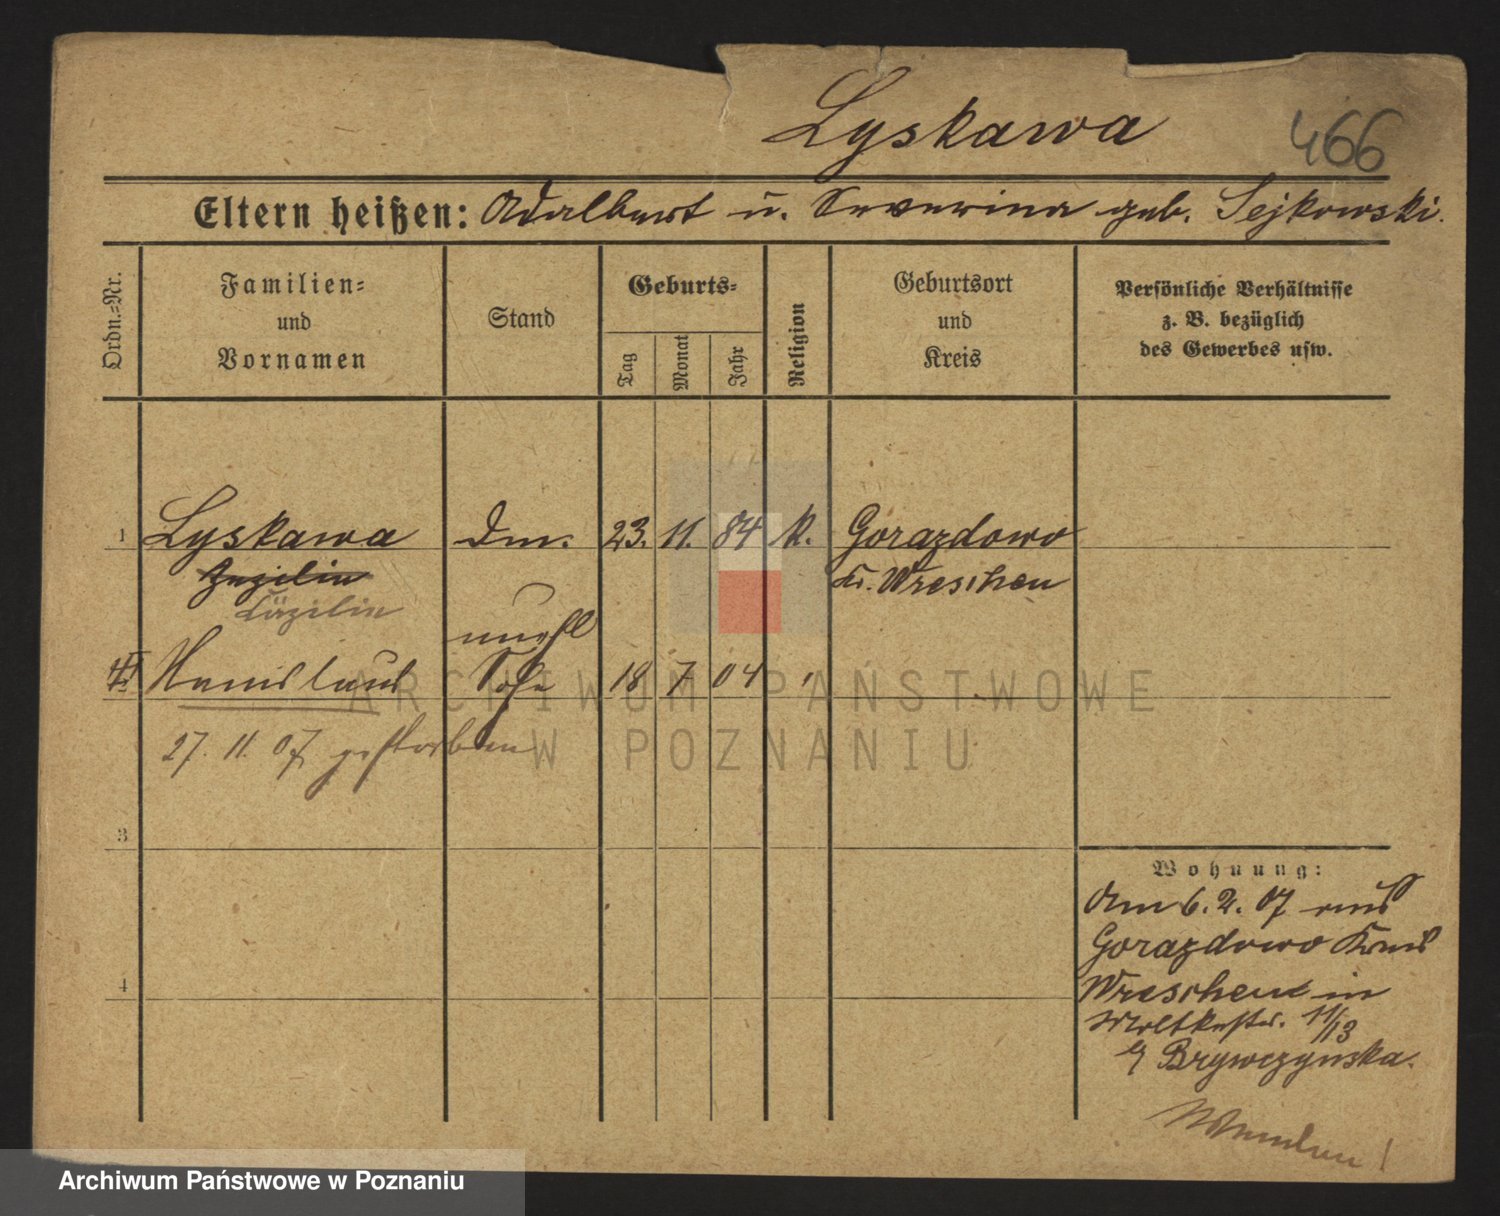 Lyskawa
466
Eltern heißen: Adalbert u. Severina geb. Sejkowski.
Ordn.-Nr.
Familien- und Vornamen
Stand
Geburts-
Tag
Monat
Jahr
Religion
Geburtsort und Kreis
Persönliche Verhältnisse
z. B. bezüglich
des Gewerbes usw.
1 Lyskawa 23. 11. 84 k. Gorazdowo
Kr. Wreschen
Cäzilie
unehl
Stanislaus Sohn 18 7 04 "
27. 11. 07 gestorben
3
4
Wohnung:
Am 6. 2. 07 aus
Gorazdowo Kreis
Wreschen in
Moltkestr. 11/13
Brywczynska.
ARCHIWUM PAŃSTWOWE
W POZNANIU
Archiwum Państwowe w Poznaniu